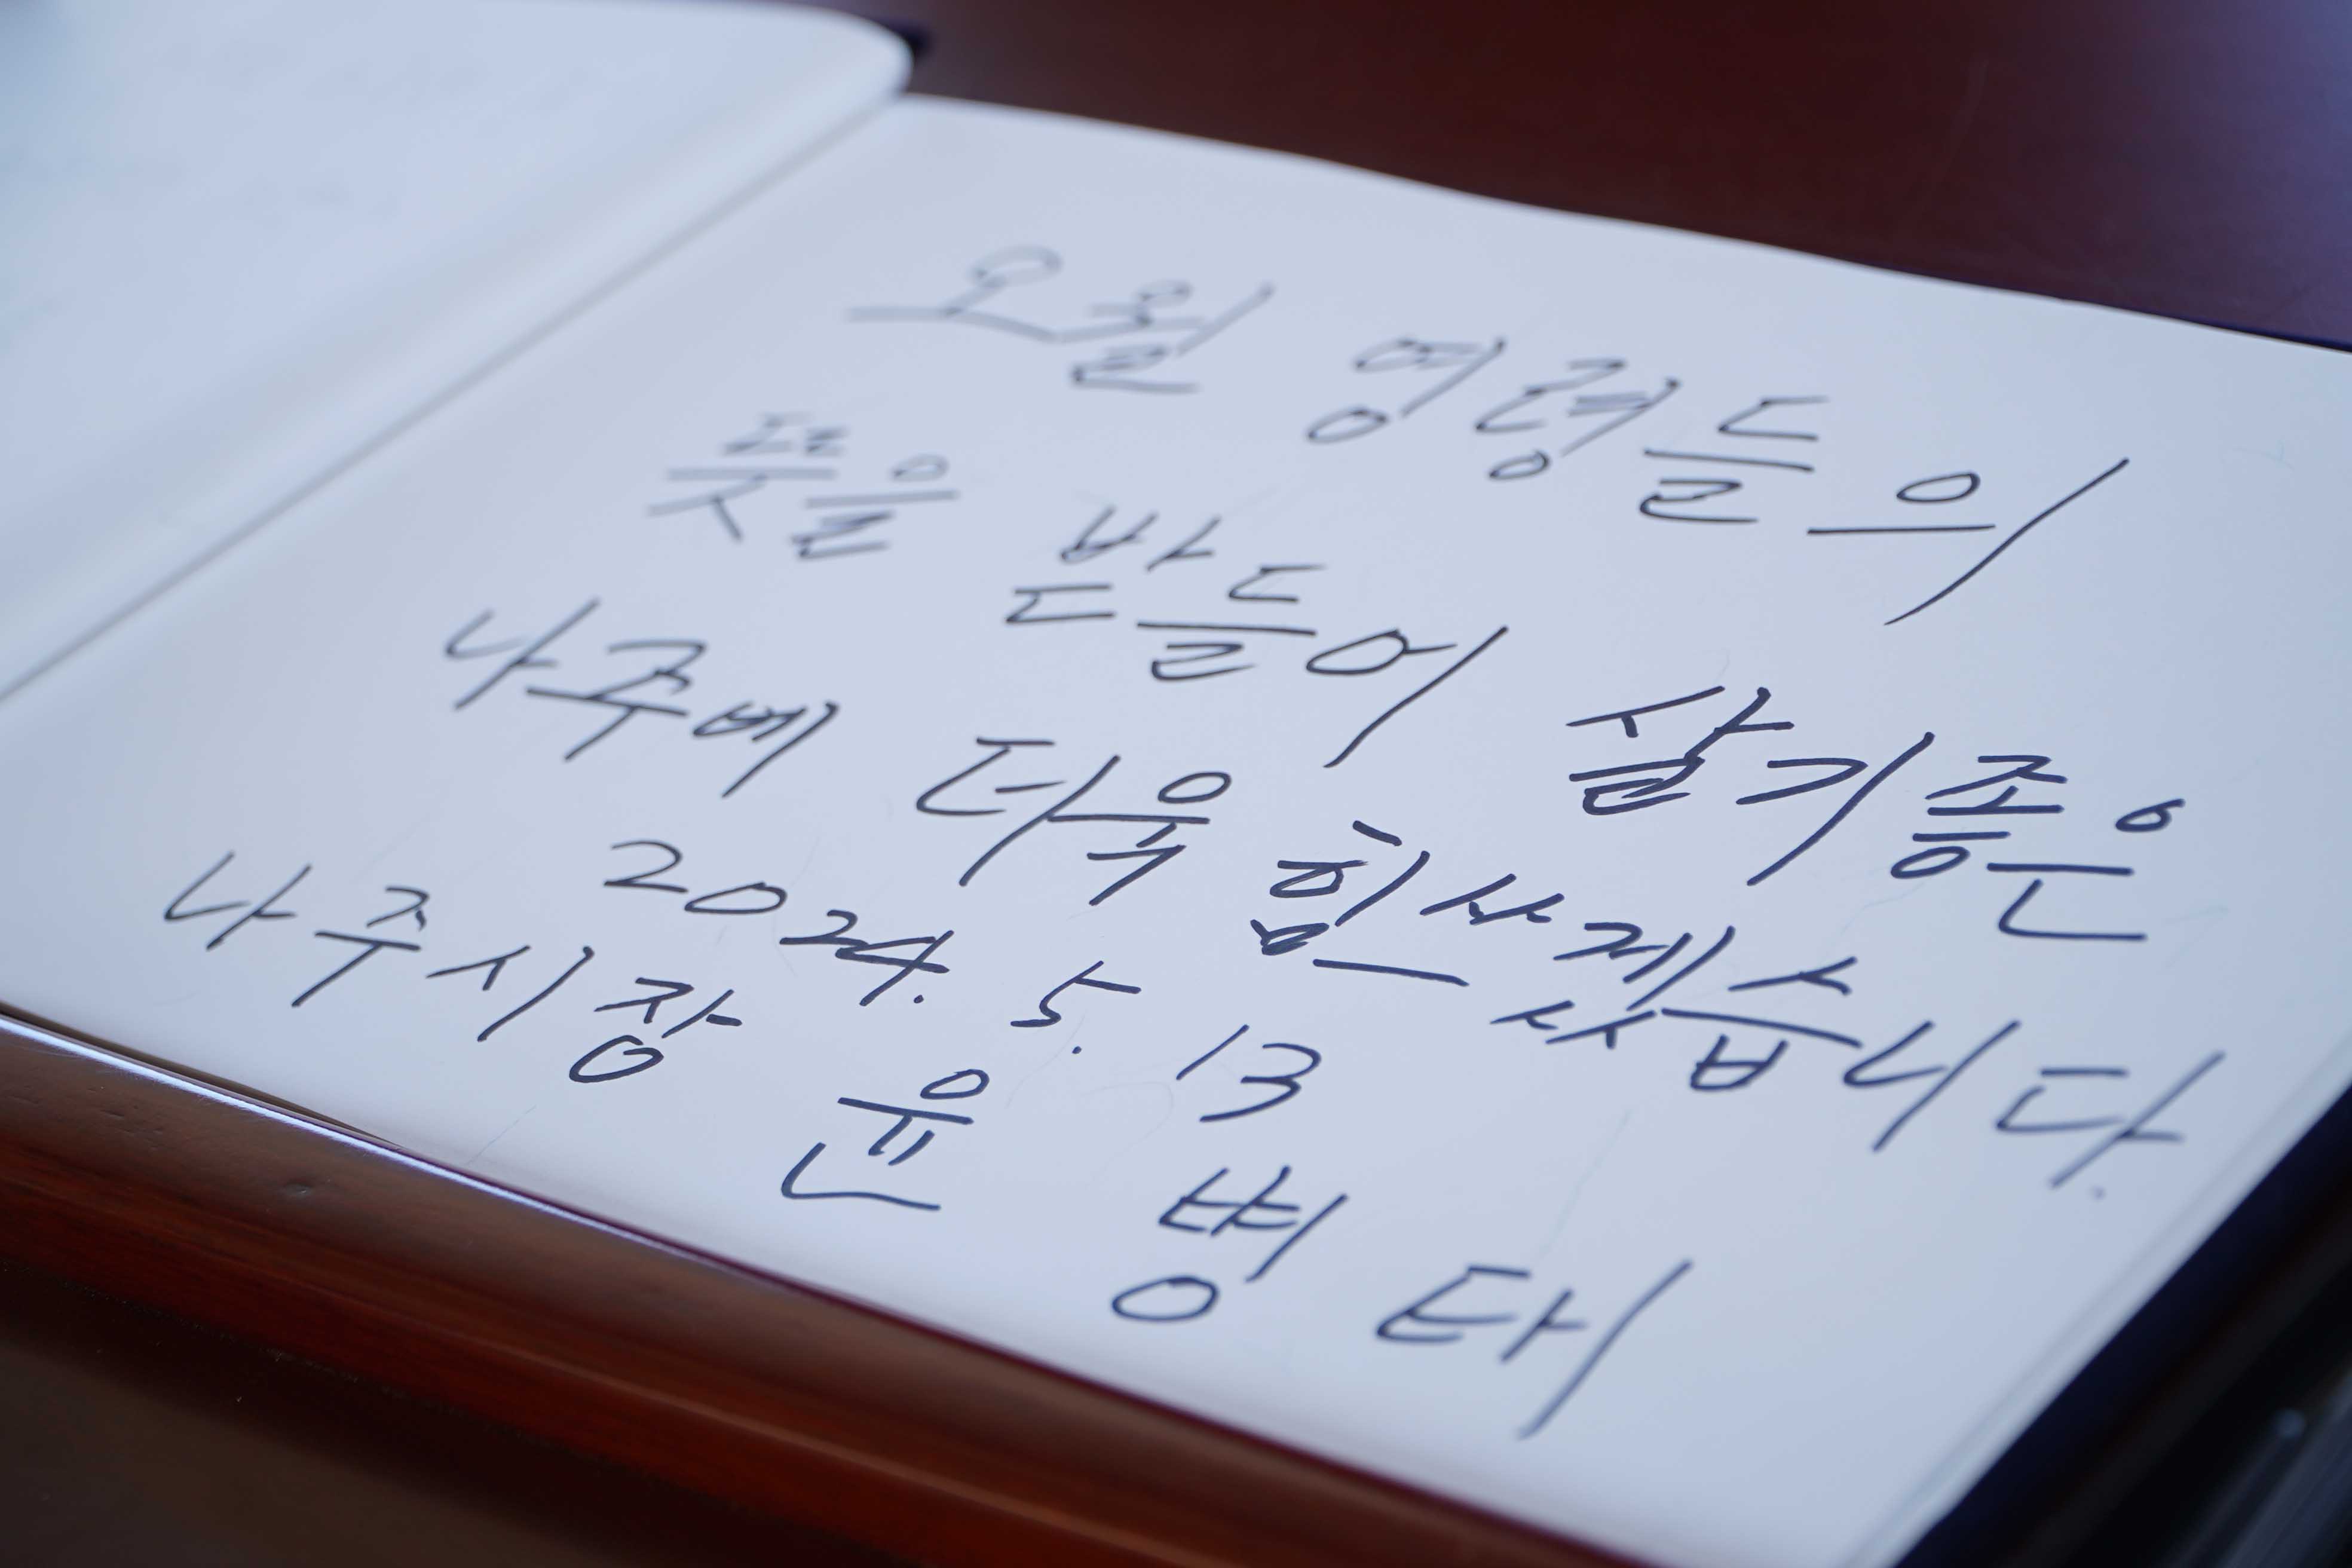 오월 영령들의
뜻을 받들어 살기좋은
나주에 더욱 힘쓰겠습니다.
2024. 5. 13
나주시장 윤 병 태